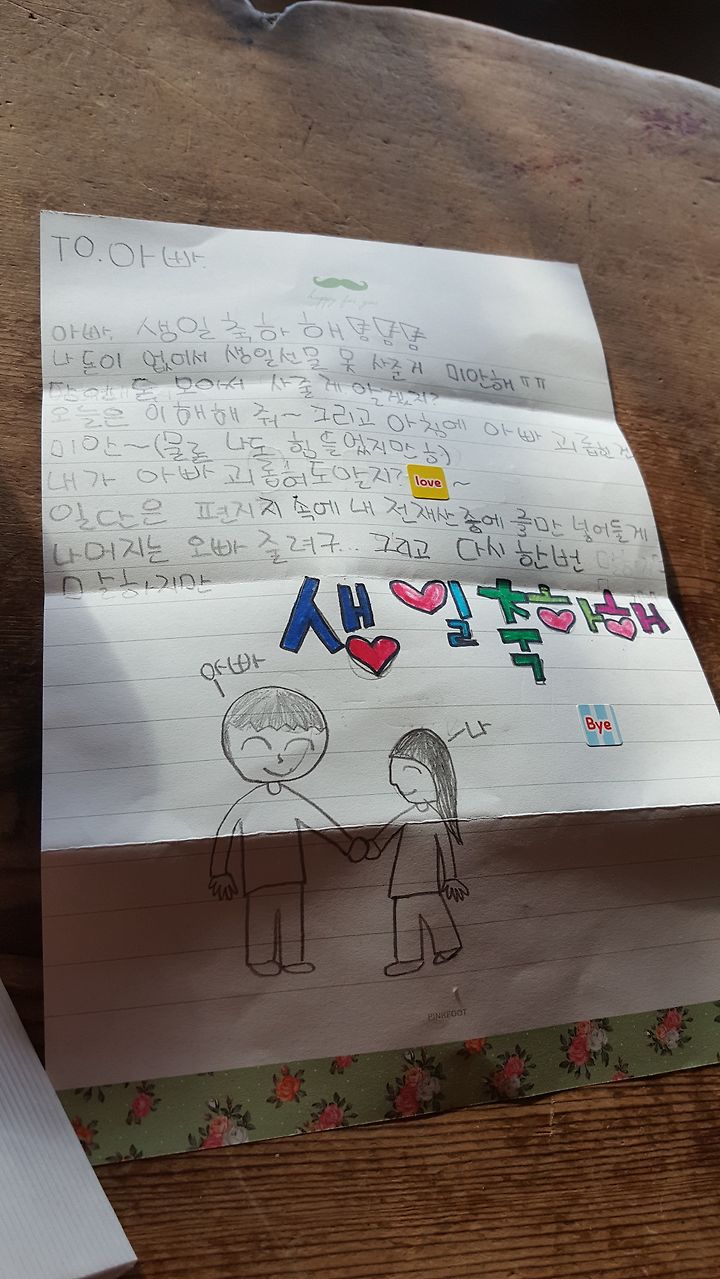 TO. 아빠.
happy for you
아빠. 생일 축하 해
나 돈이 없어서 생일선물 못 사준거 미안해 ㅠㅠ
돈 모아서 사줄게 알겠지?
오늘은 이해해 줘~ 그리고 아침에 아빠 괴롭힌건
미안~(물론 나도 힘들었지만 ㅎ)
내가 아빠 love ~
일단은 편지지 속에 내 전재산 중에 만 넣어둘게
나머지는 오빠 줄려구... 그리고 다시 한번
생일축하해
아빠
나
Bye
PINKFOOT